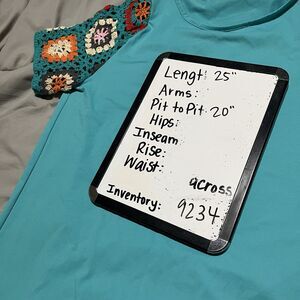 Lengt: 25"
Arms:
Pit to Pit: 20"
Hips:
Inseam
Rise:
Waist:
across
Inventory: 9234